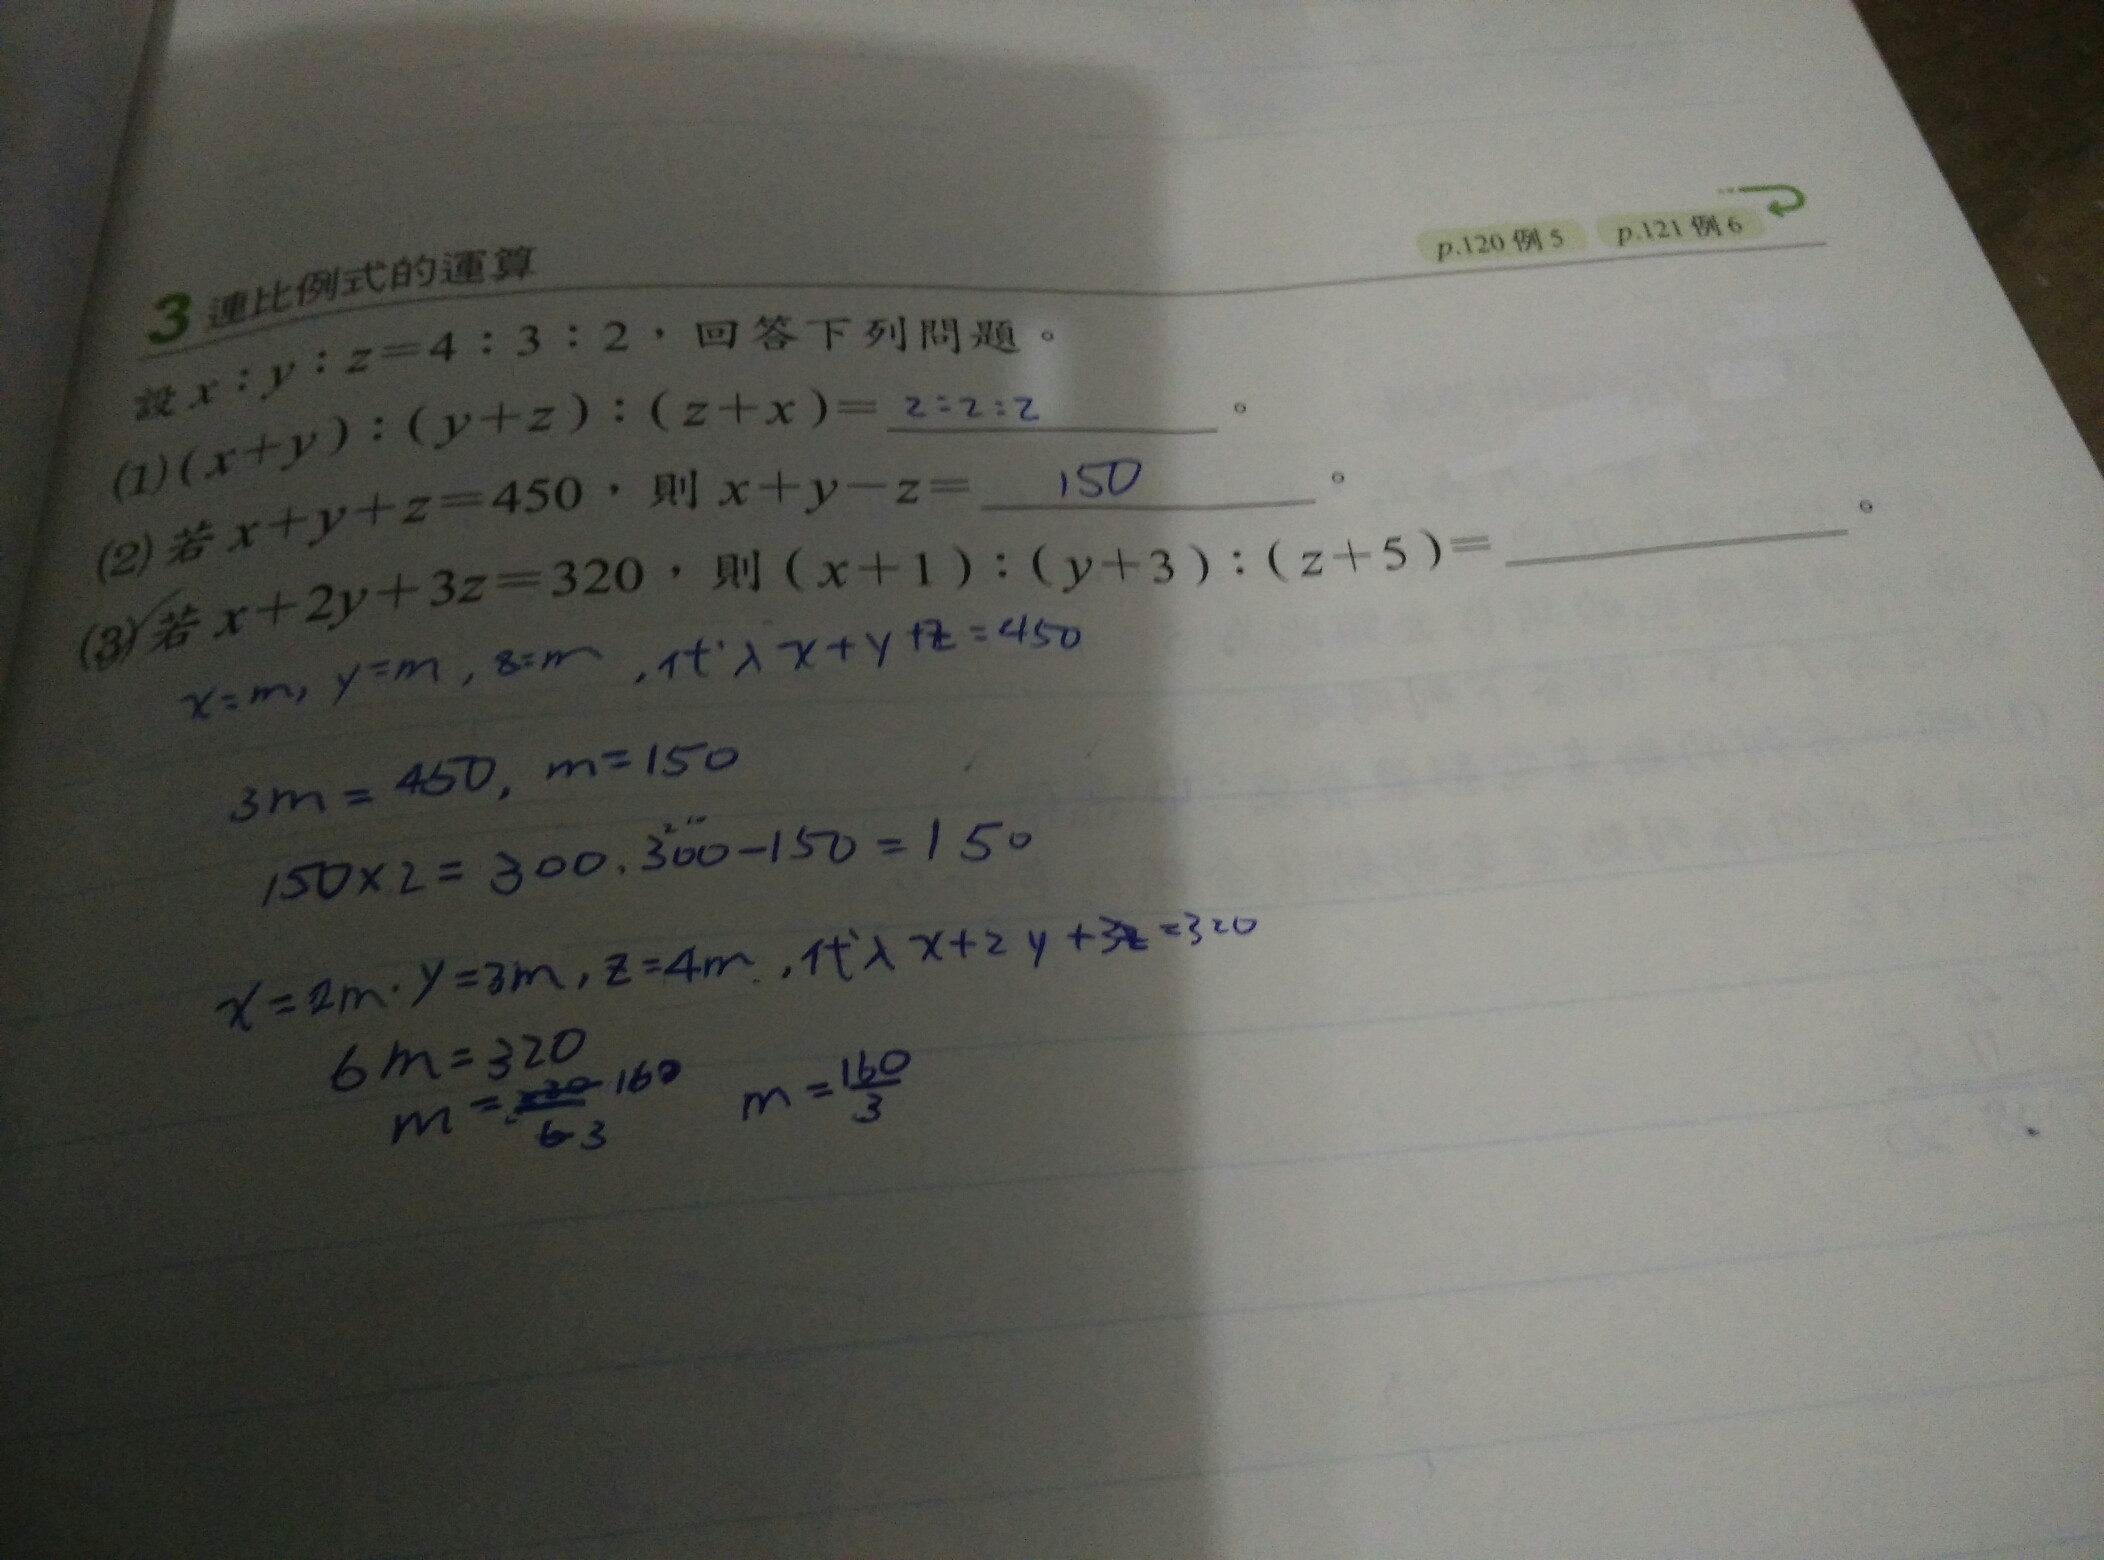 p.120 例 5 p.121 例 6
3 連比例式的運算
設 x：y：z＝4：3：2，回答下列問題。
(1)(x＋y)：(y＋z)：(z＋x)＝ 2:2:2 。
(2)若 x＋y＋z＝450，則 x＋y－z＝ 150 。
(3)若 x＋2y＋3z＝320，則(x＋1)：(y＋3)：(z＋5)＝ 。
x=m, y=m, z=m, 代入 x+y+z=450
3m = 450, m=150
150×2= 300. 300-150 = 150
x=2m. y=3m, z=4m, 代入 x+2y+3z=320
6m=320
m= 160 m=160/3
6 3